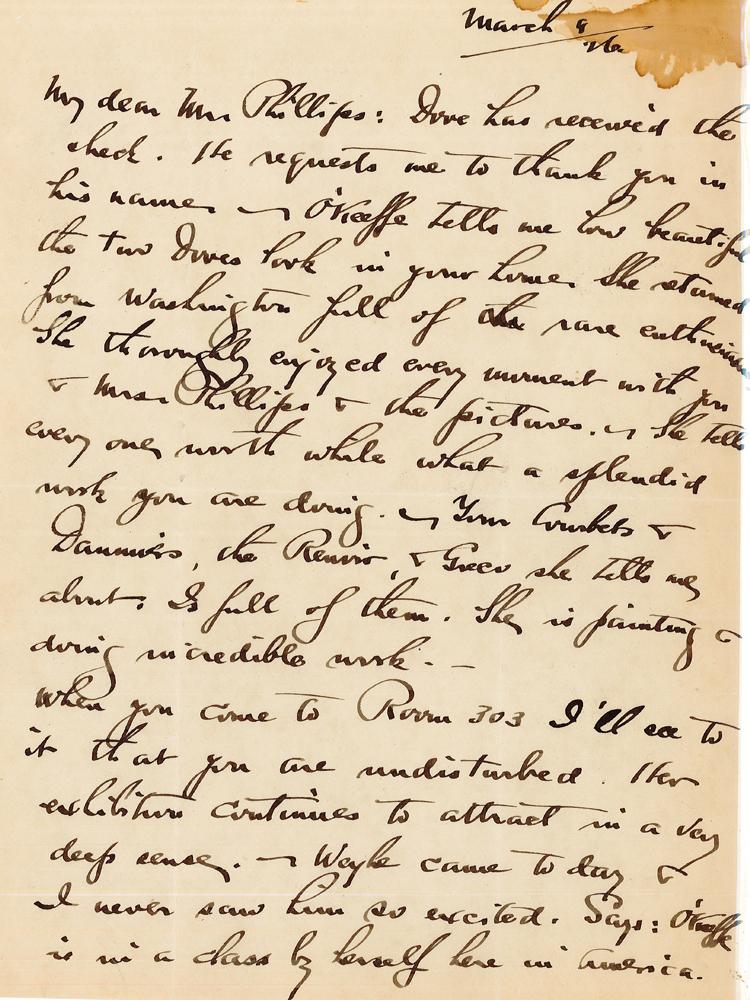 March 9
/26
My dear Mr Phillips: Dove has received the
check. He requests me to thank you in
his name. — O'Keeffe tells me how beautiful
the two Doves look in your home. She returned
from Washington full of the rare enthusiasm
She thoroughly enjoyed every moment with you
& Mrs. Phillips & the pictures. — She tells
every one worth while what a splendid
work you are doing. — Your Courbets &
Daumiers, the Renoir, & Greco she tells me
about. Is full of them. She is painting &
doing incredible work. —
When you come to Room 303 I'll see to
it that you are undisturbed. Her
exhibition continues to attract in a very
deep sense. — Weyhe came to day &
I never saw him so excited. Says: O'Keeffe
is in a class by herself here in America.